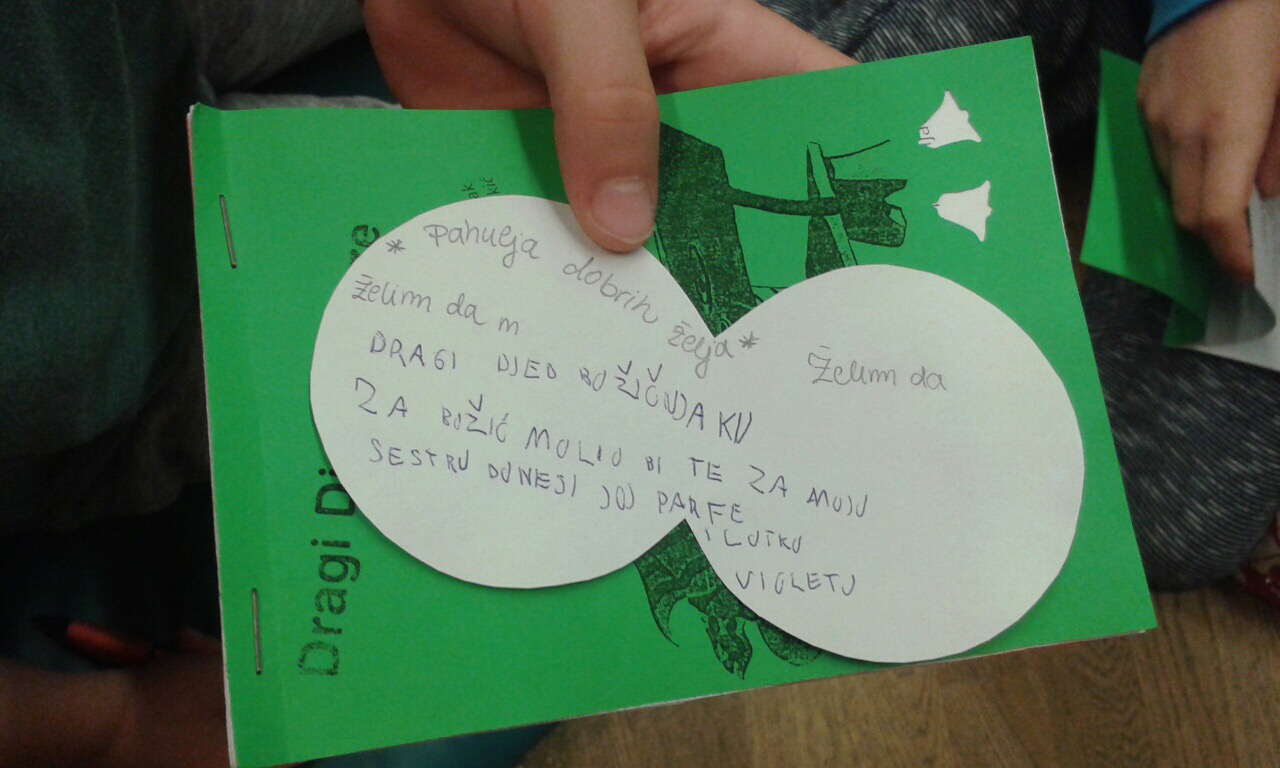 * Pahulja dobrih želja *
Želim da m
DRAGI DJED BOŽIČNJAKU
ZA BOŽIĆ MOLIO BI TE ZA MOJU
SESTRU DONESI JOJ PARFE
I LUTKU
VIOLETU
Želim da
Dragi Di